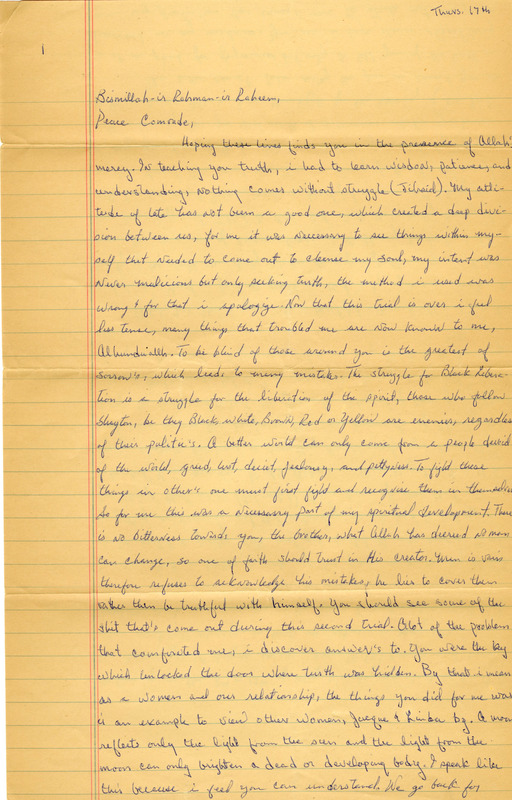 Thurs. 17th
1
Bismillah-ir Rahman-ir Raheem,
Peace Comrade,
Hoping these lines finds you in the presence of Allah's
mercy. In teaching you truth, i had to learn wisdom, patience, and
understanding, nothing comes without struggle (Jihaid). My atti-
tude of late has not been a good one, which created a deep divi-
sion between us, for me it was necessary to see things within my-
self that needed to come out to cleanse my soul, my intent was
never malicious but only seeking truth, the method i used was
wrong & for that i apologize. Now that this trial is over i feel
less tense, many things that troubled me are now known to me,
Alhumdiallh. To be blind of those around you is the greatest of
sorrow's, which leads to many mistakes. The struggle for Black Libera-
tion is a struggle for the liberation of the spirit, those who follow
Shaytan, be they Black, white, Brown, Red or Yellow are enemies, regardless
of their politic's. A better world can only come from a people devoid
of the world, greed, lust, deceit, jealousy, and pettyness. To fight these
things in other's one must first fight and recognise them in themselves
So for me this was a necessary part of my spiritual development. There
is no bitterness towards you, the brother, what Allah has decreed no man
can change, so one of faith should trust in His creator. Man is vain
therefore refuses to acknowledge his mistakes, he lies to cover them
rather then be truthful with himself. You should see some of the
shit that's come out during this second trial. Alot of the problem
that comforated me, i discover answer's to. You were the key
which unlocked the door where truth was hidden. By that i mean
as a women and our relationship, the things you did for me was
is an example to view other women, Jacque & Simba by. A moon
reflects only the light from the sun and the light from the
moon can only brighten a dead or developing body. I speak like
this because i feel you can understand. We go back for